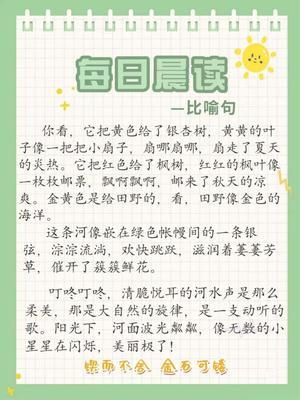 每日晨读
—比喻句
你看，它把黄色给了银杏树，黄黄的叶
子像一把把小扇子，扇哪扇哪，扇走了夏天
的炎热。它把红色给了枫树，红红的枫叶像
一枚枚邮票，飘啊飘啊，邮来了秋天的凉
爽。金黄色是给田野的，看，田野像金色的
海洋。
这条河像嵌在绿色帐幔间的一条银
弦，淙淙流淌，欢快跳跃，滋润着萋萋芳
草，催开了簇簇鲜花。
叮咚叮咚，清脆悦耳的河水声是那么
柔美，那是大自然的旋律，是一支动听的
歌。阳光下，河面波光粼粼，像无数的小
星星在闪烁，美丽极了！
锲而不舍 金石可镂